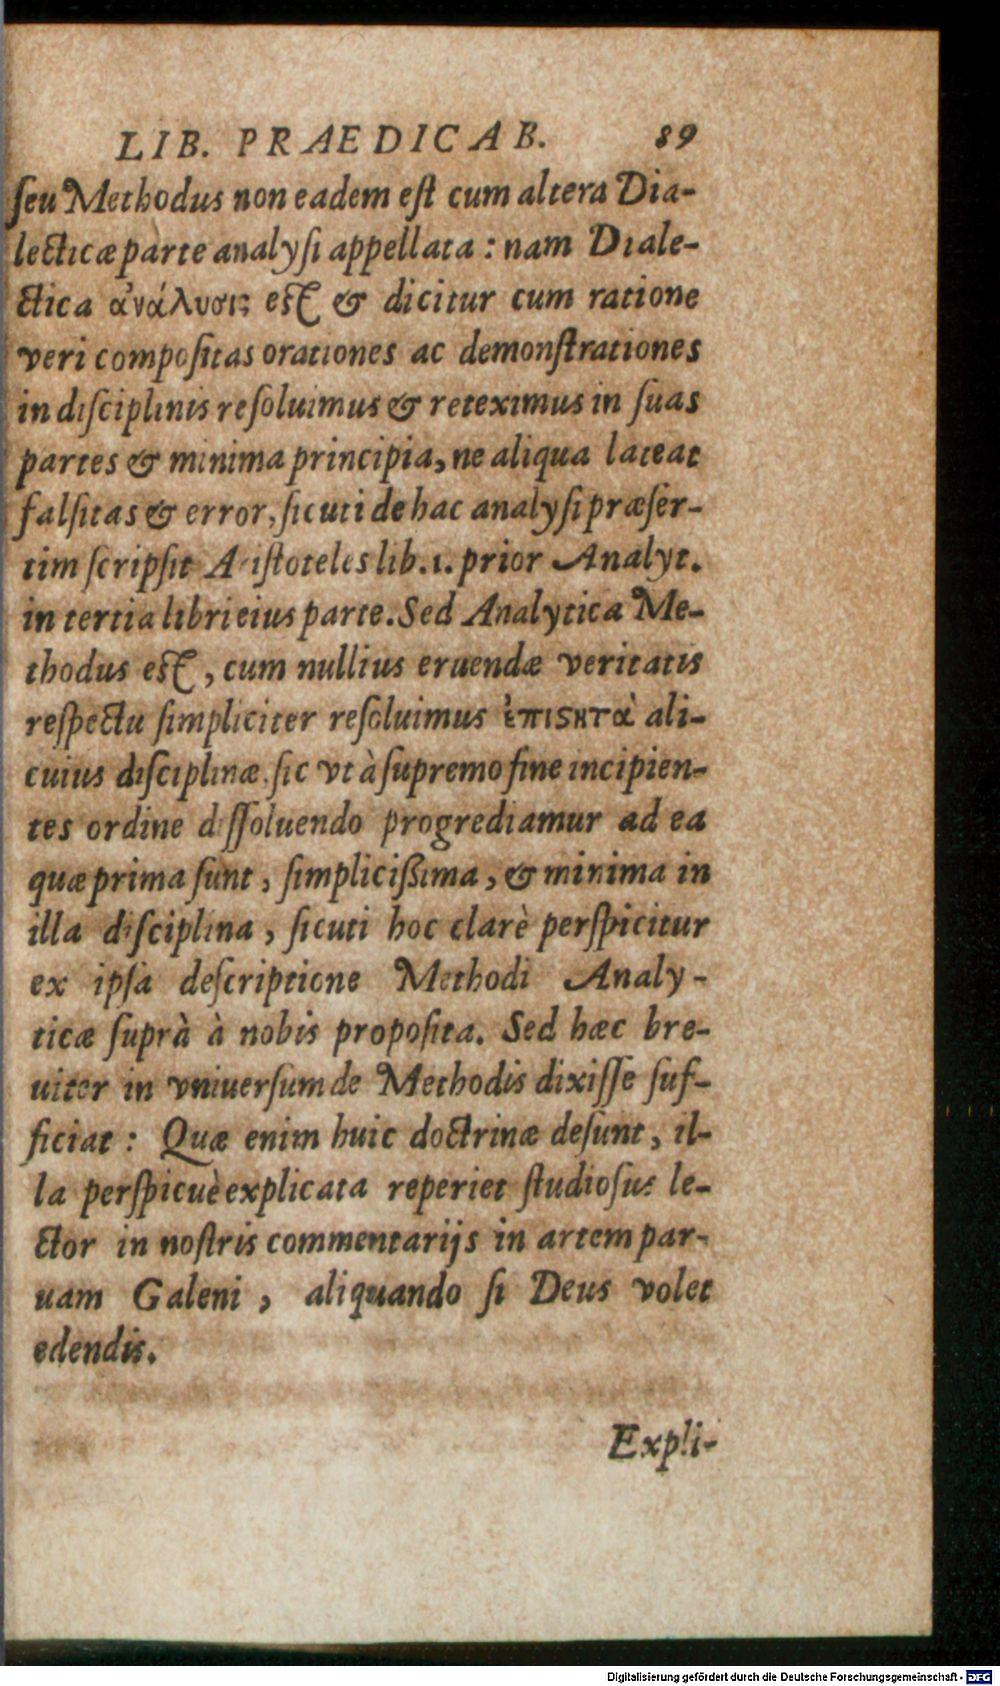 LIB. PRAEDICAB. 89
ſeu Methodus non eadem eſt cum altera Dia-
lecticæ parte analyſi appellata : nam Diale-
ctica ἀνάλυσις eſt & dicitur cum ratione
veri compoſitas orationes ac demonſtrationes
in diſciplinis reſoluimus & reteximus in ſuas
partes & minima principia, ne aliqua lateat
falſitas & error, ſicuti de hac analyſi præſer-
tim ſcripſit Ariſtoteles lib. 1. prior Analyt.
in tertia libri eius parte. Sed Analytica Me-
thodus eſt, cum nullius eruendæ veritatis
reſpectu ſimpliciter reſoluimus ἐπιςητὰ ali-
cuius diſciplinæ. ſic vt à ſupremo fine incipien-
tes ordine diſſoluendo progrediamur ad ea
quæ prima ſunt, ſimpliciſsima, & minima in
illa diſciplina, ſicuti hoc clarè perſpicitur
ex ipſa deſcriptione Methodi Analy-
ticæ ſuprà à nobis propoſita. Sed hæc bre-
uiter in vniuerſum de Methodis dixiſſe ſuf-
ficiat : Quæ enim huic doctrinæ deſunt, il-
la perſpicuè explicata reperiet ſtudioſus le-
ctor in noſtris commentarijs in artem par-
uam Galeni, aliquando ſi Deus volet
edendis.
Expli-
Digitalisierung gefördert durch die Deutsche Forschungsgemeinschaft - DFG